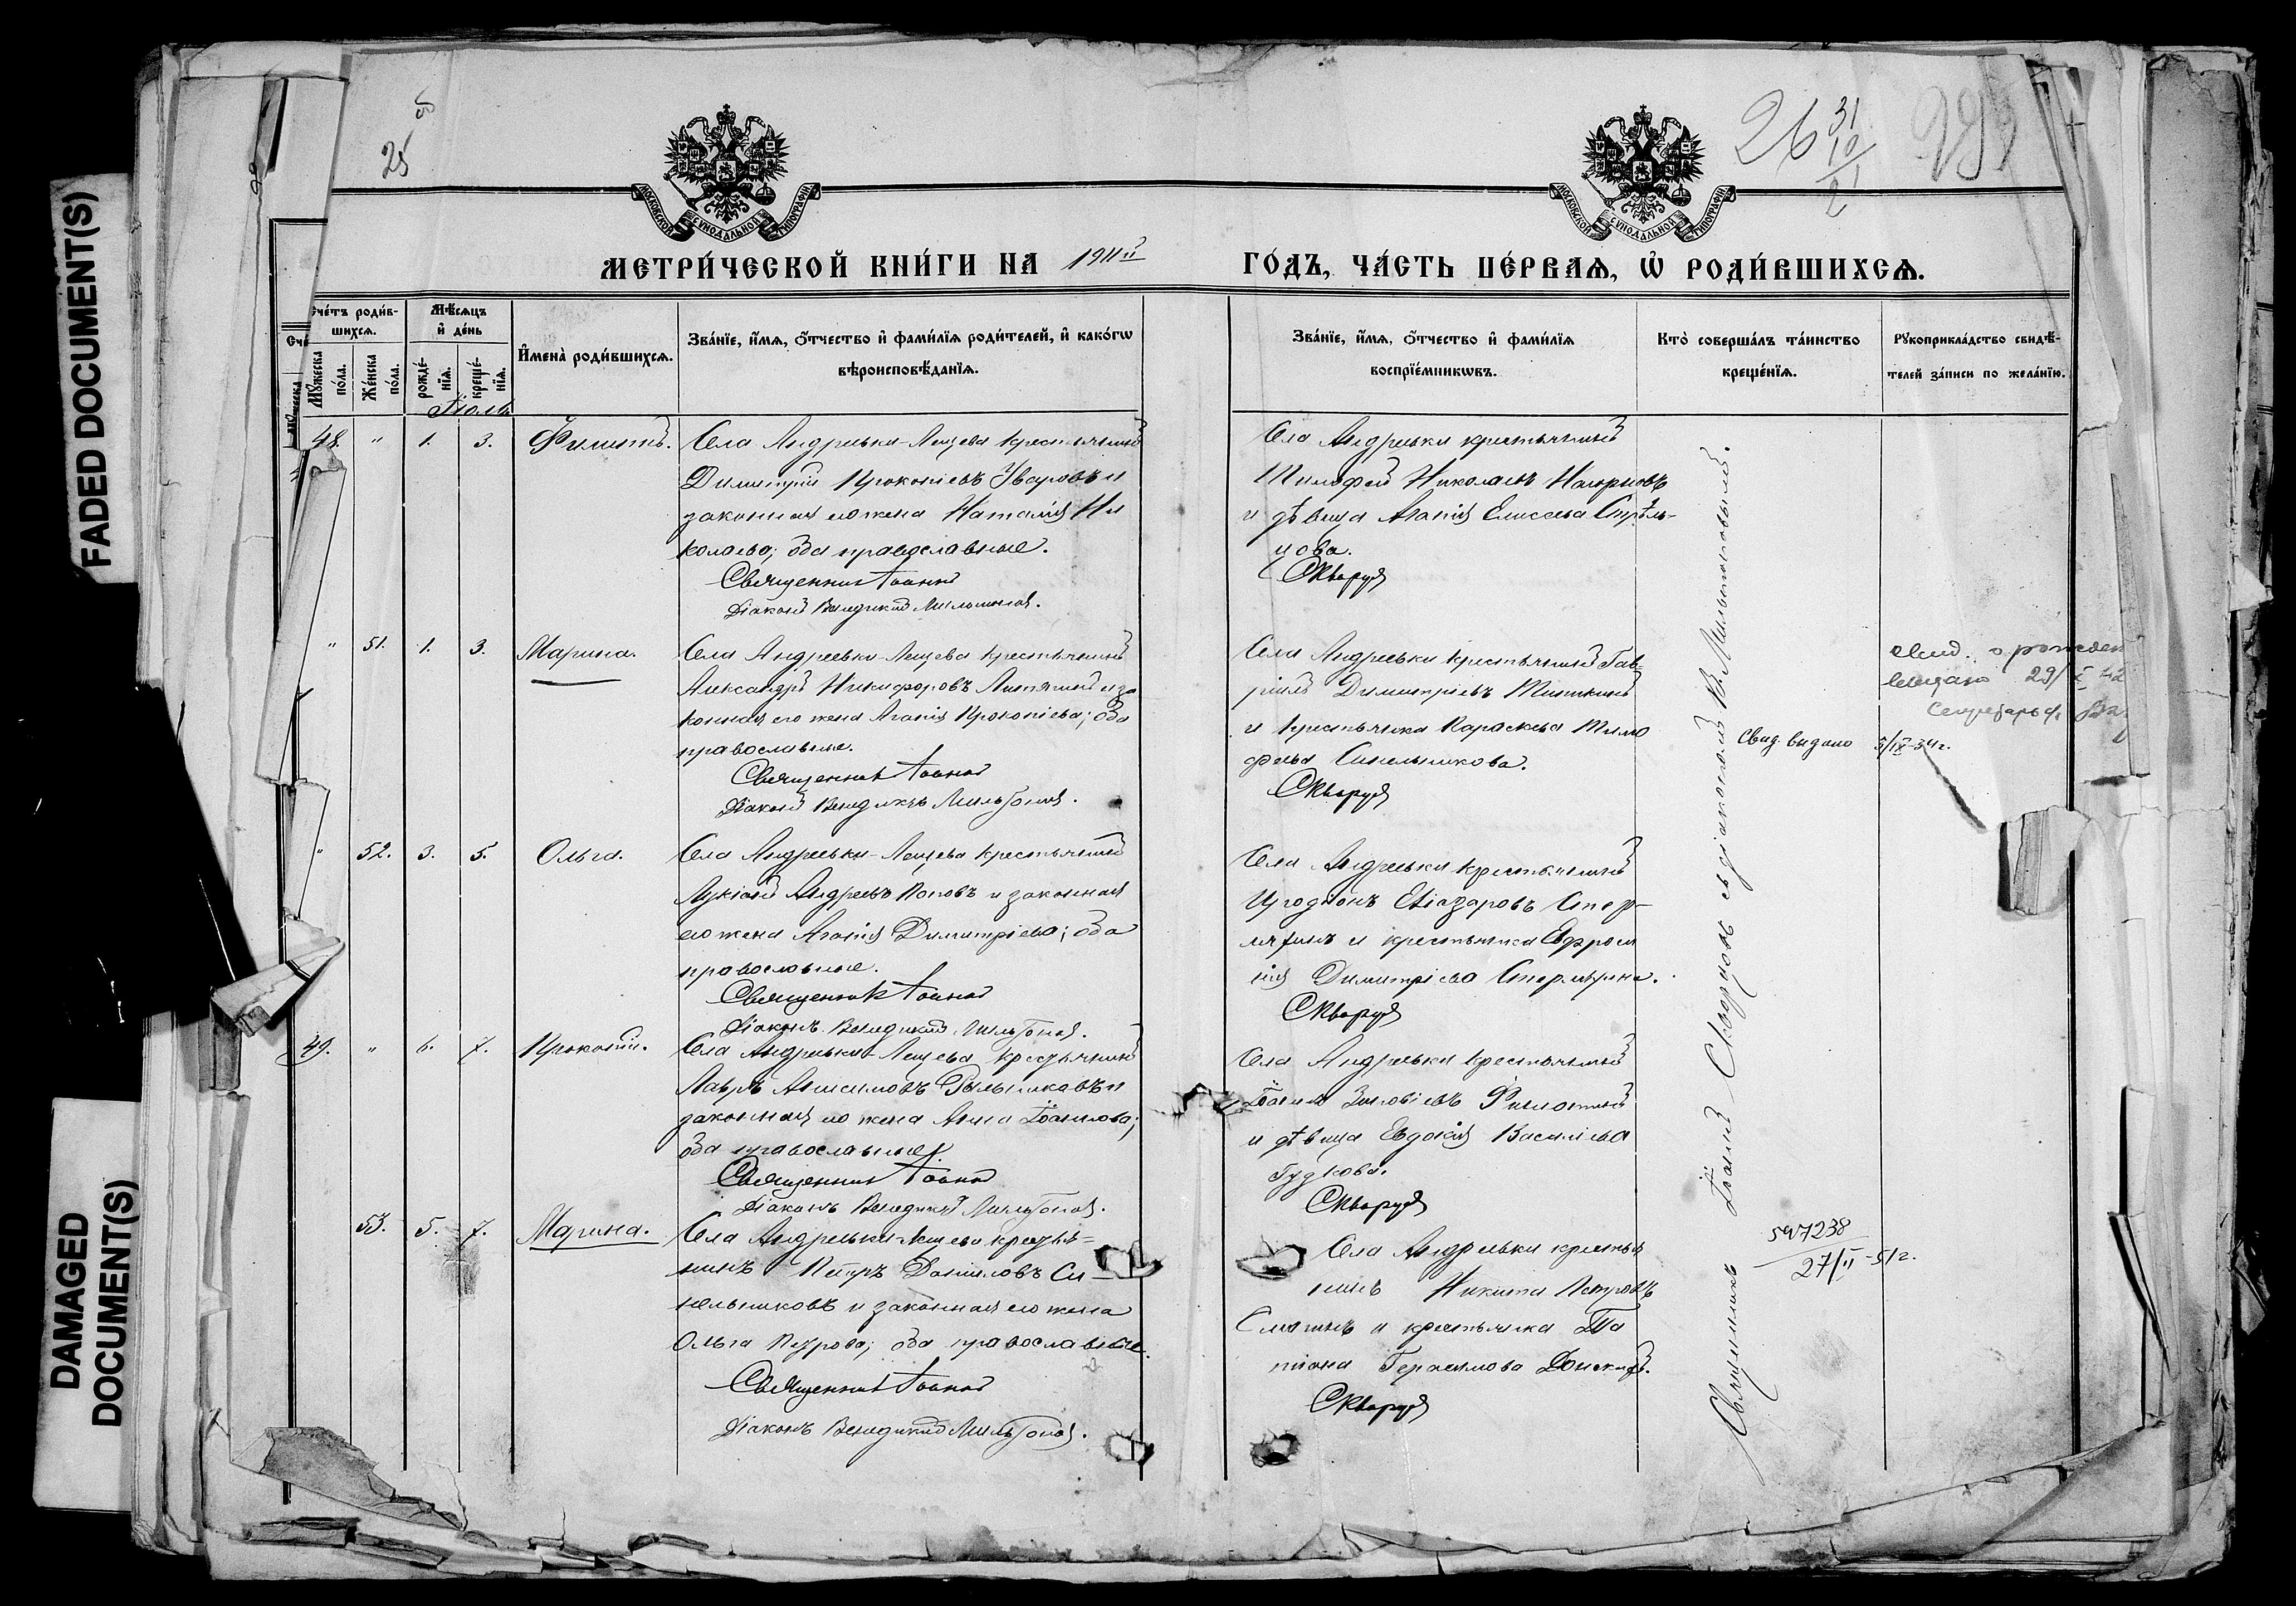 FADED DOCUMENT(S)
DAMAGED
DOCUMENT(S)
25 об
26
31
МОСКОВСКОЙ СѴНОДАЛЬНОЙ ТИПОГРАФІИ
МОСКОВСКОЙ СѴНОДАЛЬНОЙ ТИПОГРАФІИ
МЕТРИ́ЧЕСКОЙ КНИ́ГИ НА 1911й ГО́ДЪ, ЧА́СТЬ ПЕ́РВАѦ, Ѡ҆ РОДИ́ВШИХСѦ.
Сче́тъ роди́в-
шихсѧ.
Мꙋ́жеска по́ла.
Же́нска по́ла.
Мѣ́сѧцъ
и҆ де́нь
рожде́-нїѧ.
креще́-нїѧ.
И҆мена̀ роди́вшихсѧ.
Зва́нїе, и҆́мѧ, ѻ҆́тчество и҆ фами́лїѧ роди́телей, и҆ како́гѡ
вѣроисповѣ́данїѧ.
Зва́нїе, и҆́мѧ, ѻ҆́тчество и҆ фами́лїѧ
воспрїе́мникѡвъ.
Кто̀ соверша́лъ та́инство
креще́нїѧ.
Рꙋкоприкла́дство свидѣ́-
телей за́писи по жела́нїю.
Іюль
48. " 1. 3. Филиппъ.
Села Андреевки-Лещева крестьянинъ
Димитрій Прокопіевъ Уваровъ и
законная его жена Наталія Ни
колаева; оба православные.
Священникъ Іоаннъ
Діаконъ Венедиктъ Мильтоновъ.
Села Андреевки крестьянинъ
Тимофей Николаевъ
и дѣвица Агапія Елисеева Стрѣль-
цова.
Скворцовъ
" 51. 1. 3. Марина.
Села Андреевки-Лещева крестьянинъ
Александръ Никифоровъ и за
конная его жена Агапія Прокопіева; оба
православные.
Священникъ Іоаннъ
Діаконъ Венедиктъ Мильтоновъ.
Села Андреевки крестьянинъ Гав-
ріилъ Димитріевъ
и крестьянка Параскева Тимо
феева Синельникова.
Скворцовъ
Свид. о рожден
выдано 29/ 42
Секретарь
Свид. выдано 5/IX-34г.
" 52. 3. 5. Ольга.
Села Андреевки-Лещева крестьянинъ
Лукіанъ Андреевъ Поповъ и законная
его жена Агапія Димитріева; оба
православные.
Священникъ Іоаннъ
Діаконъ Венедиктъ Мильтоновъ.
Села Андреевки крестьянинъ
Иродіонъ
и крестьянка Евфроси
нія Димитріева
Скворцовъ
49. " 6. 7. Прокопій.
Села Андреевки-Лещева крестьянинъ
Лавръ Анисимовъ и
законная его жена Анна
оба православные.
Священникъ Іоаннъ
Діаконъ Венедиктъ Мильтоновъ.
Села Андреевки крестьянинъ
и дѣвица Евдокія Василіева
Гудкова.
Скворцовъ
53. 5. 7. Марина.
Села Андреевки-Лещева крестья-
нинъ Петръ Даниловъ Си-
нельниковъ и законная его жена
Ольга Петрова; оба православные.
Священникъ Іоаннъ
Діаконъ Венедиктъ Мильтоновъ.
Села Андреевки крестья
нинъ Никита Петровъ
Смагинъ и крестьянка Та
тіана Герасимова
Скворцовъ
Священникъ Іоаннъ Скворцовъ съ діакономъ В. Мильтоновымъ.
597238
27/II-51г.